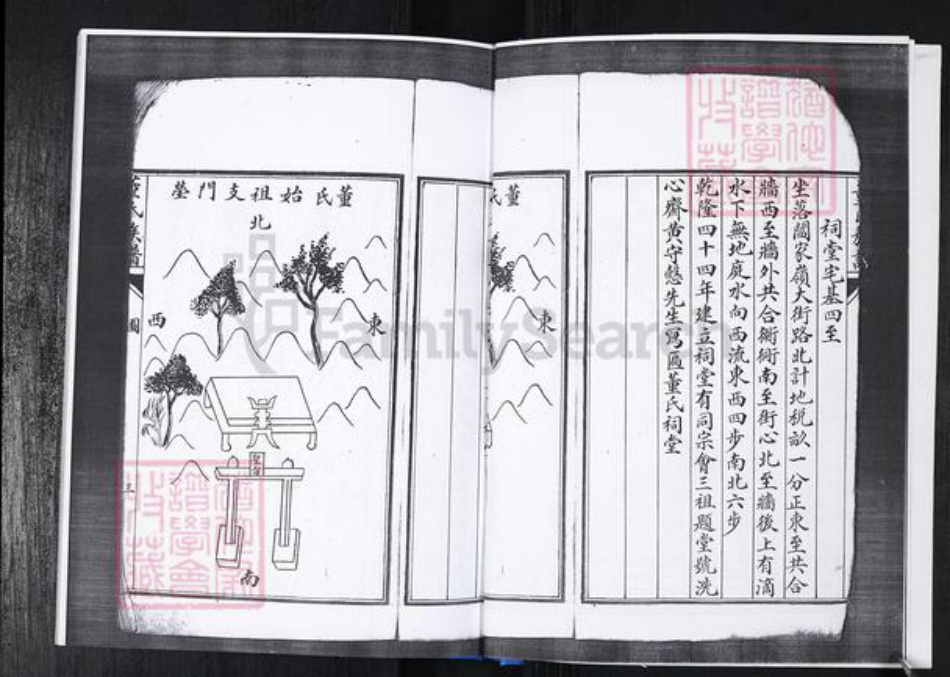 祠堂宅基四至
坐落閻家嶺大街路北計地稅畝一分正東至共合
牆西至牆外共合衚衕南至街心北至牆後上有滴
水下無地庭水向西流東西四步南北六步
乾隆四十四年建立祠堂有同宗會三祖題堂號洗
心齋黄守慤先生寫匾董氏祠堂
董氏
東
董氏始祖支門塋
北
東
西
南
圖
三
FamilySearch